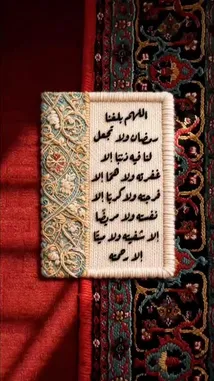 اللهم بلغنا
رمضان ولا تجعل
لنا فيه ذنبا إلا
غفرته ولا هما إلا
فرجته ولا كربا إلا
نفسته ولا مريضا
إلا شفيته ولا ميتا
إلا رحمته